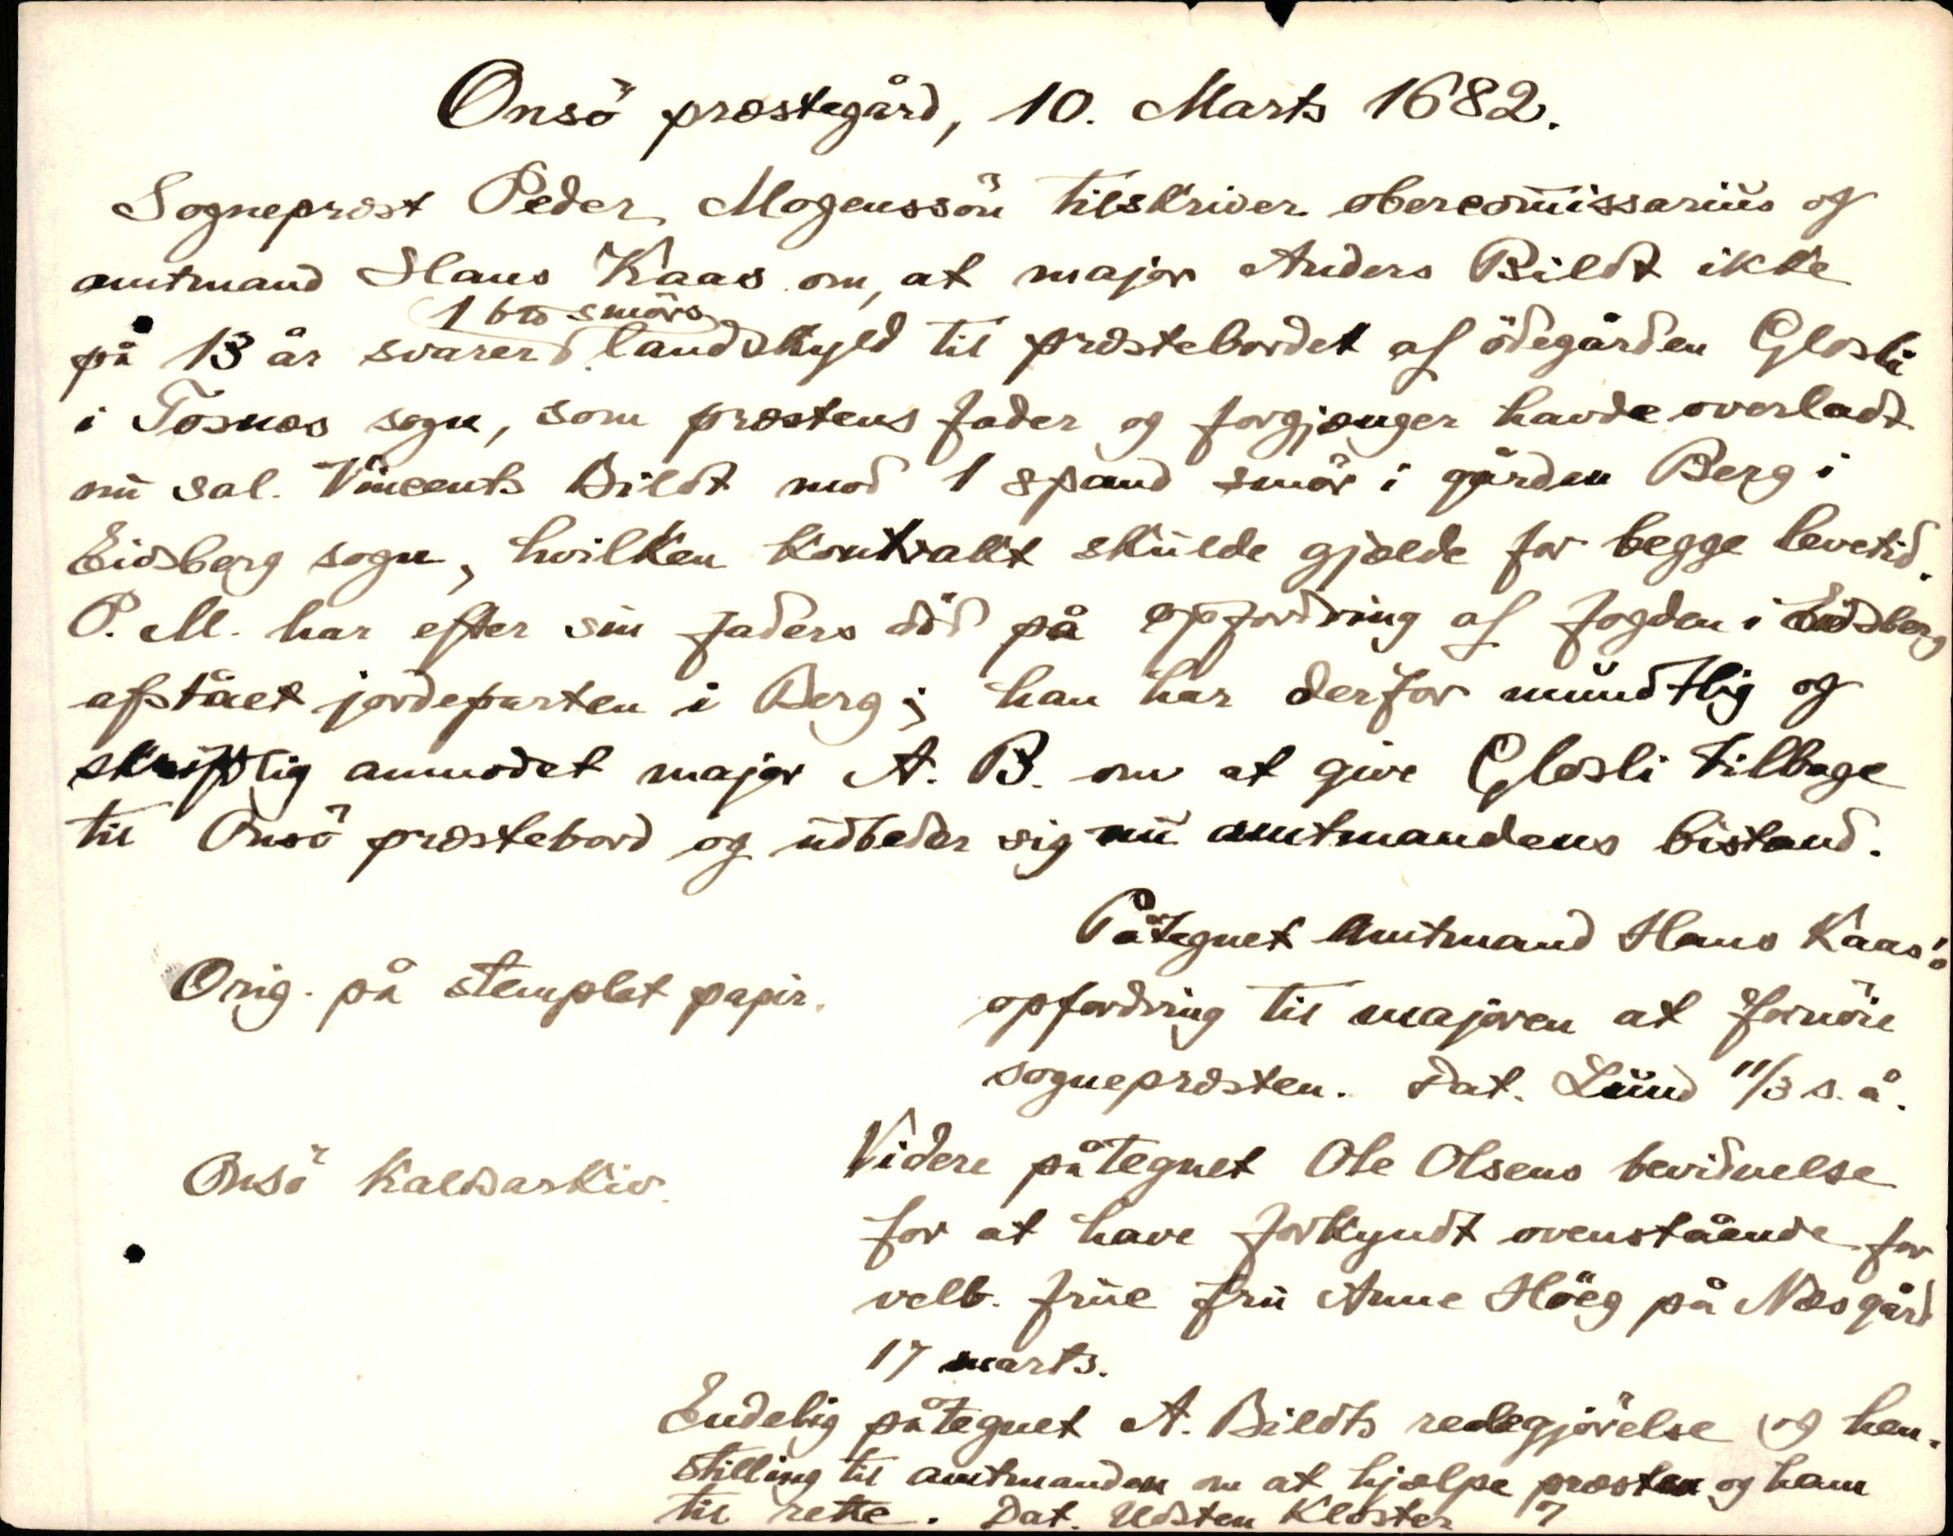 Onsö præstegård, 10. Marts 1682.
Sognepræst Peder Mogenssön tilskriver obercom̅issarius og
amtmand Hans Kaas om, at major Anders Bildt ikke
1 bto smörs
på 13 år svarer landskyld til præstebordet af ödegården Glosli
i Tosnæs sogn, som præstens fader og forgjænger havde overladt
nu sal. Vincents Bildt mod 1 spand smör i gården Berg i
Eidsberg sogn, hvilken kontrakt skulde gjælde for begge levetid.
P. M. har efter sin faders död på opfordring af fogden i Eidsberg
afstået jordeparten i Berg; han har derfor mundtlig og
skriftlig anmodet major A. B. om at give Glosli tilbage
til Onsö præstebord og udbeder sig nu amtmandens bistand.
Påtegnet Amtmand Hans Kaas's
Orig. på stemplet papir.
opfordring til majoren at fornöie
sognepræsten. Dat. Lund 11/3 s. å.
Onsö Kaldsarkiv.
Videre påtegnet Ole Olsens bevidnelse
for at have forkyndt ovenstående for
velb. frue fru Anne Höeg på Næsgård
17 marts.
Endelig påtegnet A. Bildts redegjörelse og hen-
stilling til amtmanden om at hjælpe præsten og ham
til rette. Dat. Udsten Kloster 7